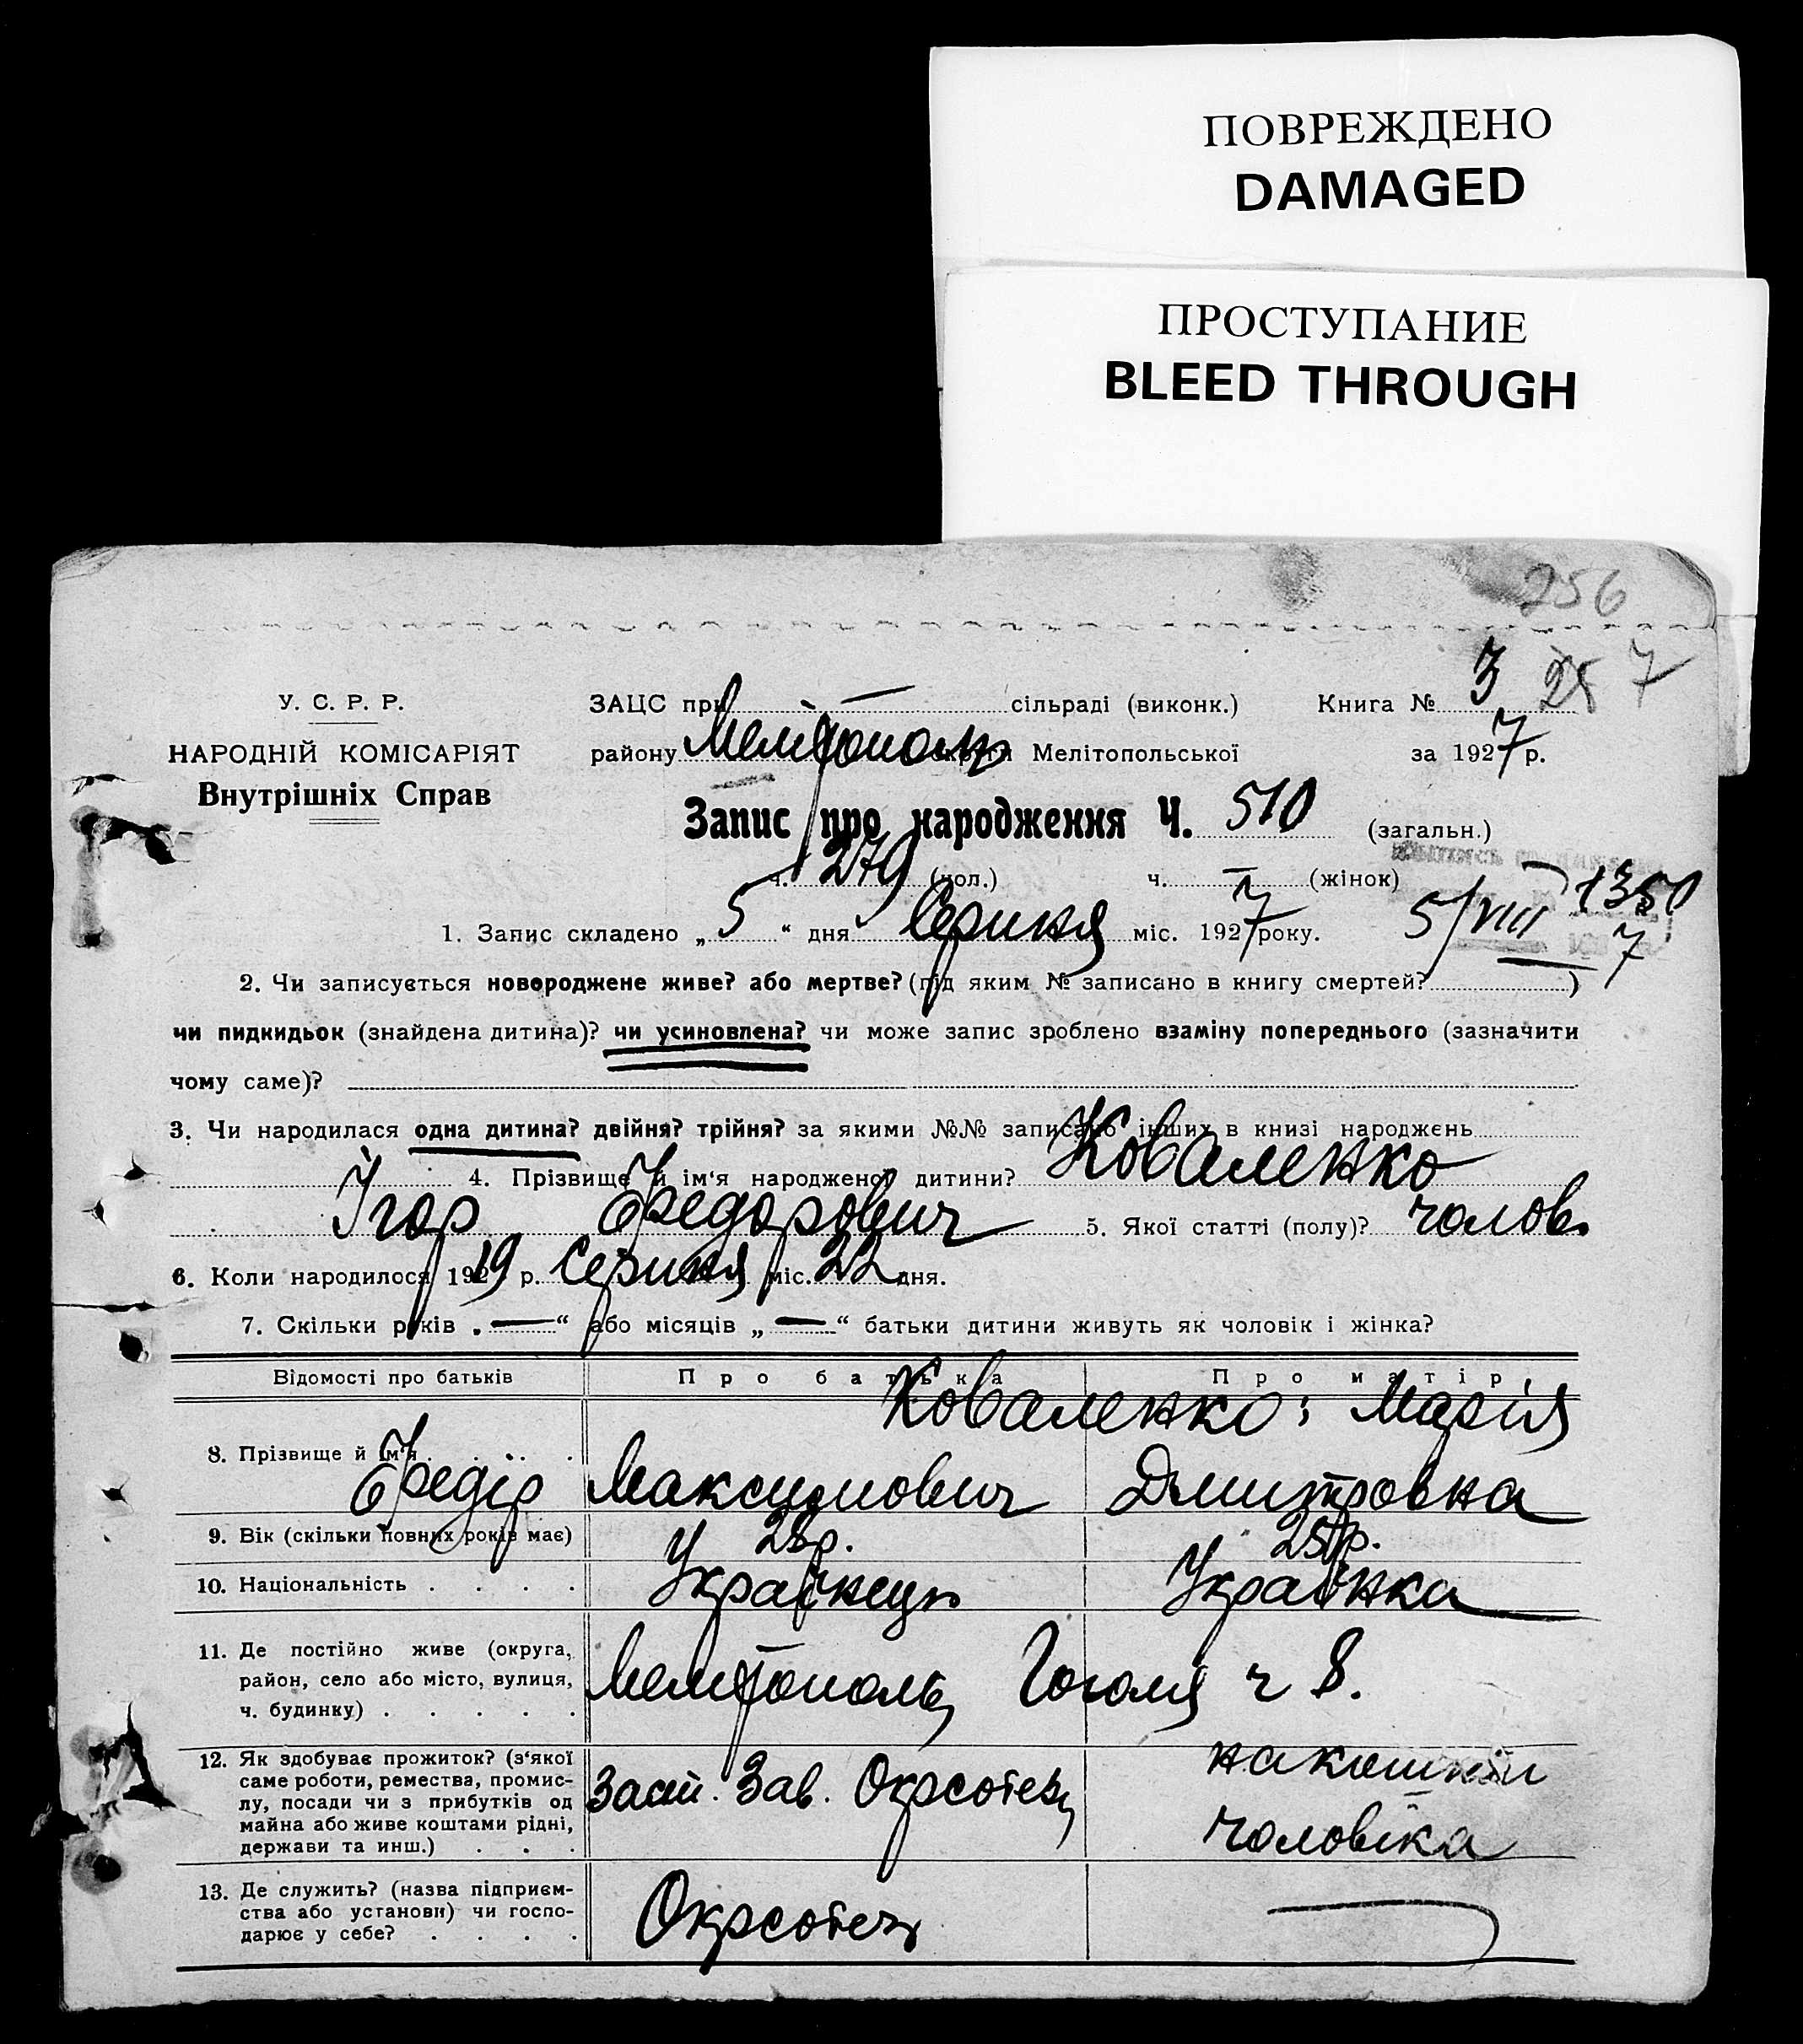 ПОВРЕЖДЕНО
DAMAGED
ПРОСТУПАНИЕ
BLEED THROUGH
256
У. С. Р. Р.
НАРОДНІЙ КОМІСАРІЯТ
Внутрішніх Справ
ЗАЦС при — сільраді (виконк.) Книга № 3 7
району Мелітополь округи Мелітопольської за 1927 р.
Запис про народження Ч. 510 (загальн.)
ч. 279 (чол.) ч. — (жінок)
1350
1. Запис складено „ 5 “ дня Серпня міс. 1927 року. 5/VIII 7
2. Чи записується новороджене живе? або мертве? (під яким № записано в книгу смертей? )
чи пидкидьок (знайдена дитина)? чи усиновлена? чи може запис зроблено взаміну попереднього (зазначити
чому саме)?
3. Чи народилася одна дитина? двійня? трійня? за якими №№ записано інших в книзі народжень
4. Прізвище й ім‘я народженої дитини? Коваленко
Ігор Федорович 5. Якої статті (полу)? чолов.
6. Коли народилося 19219 р. Серпня міс. 22 дня.
7. Скільки років „ — “ або місяців „ — “ батьки дитини живуть як чоловік і жінка?
Відомості про батьків Про батька Про матір
Коваленко: Марія
8. Прізвище й ім‘я . . . .
Федір Максимович Дмитровна
9. Вік (скільки повних років має) 28р. 25р.
10. Національність . . . . Українець Українка
11. Де постійно живе (округа,
район, село або місто, вулиця,
ч. будинку) . . . . .
Мелітополь, Гоголя ч 8.
12. Як здобуває прожиток? (з‘якої
саме роботи, ремества, промис-
лу, посади чи з прибутків од
майна або живе коштами рідні,
держави та инш.) . . .
Заст. Зав. Окрсотез
на кошти
чоловіка
13. Де служить? (назва підприєм-
ства або установи) чи госпо-
дарює у себе? . . . .
Окрсотез
—